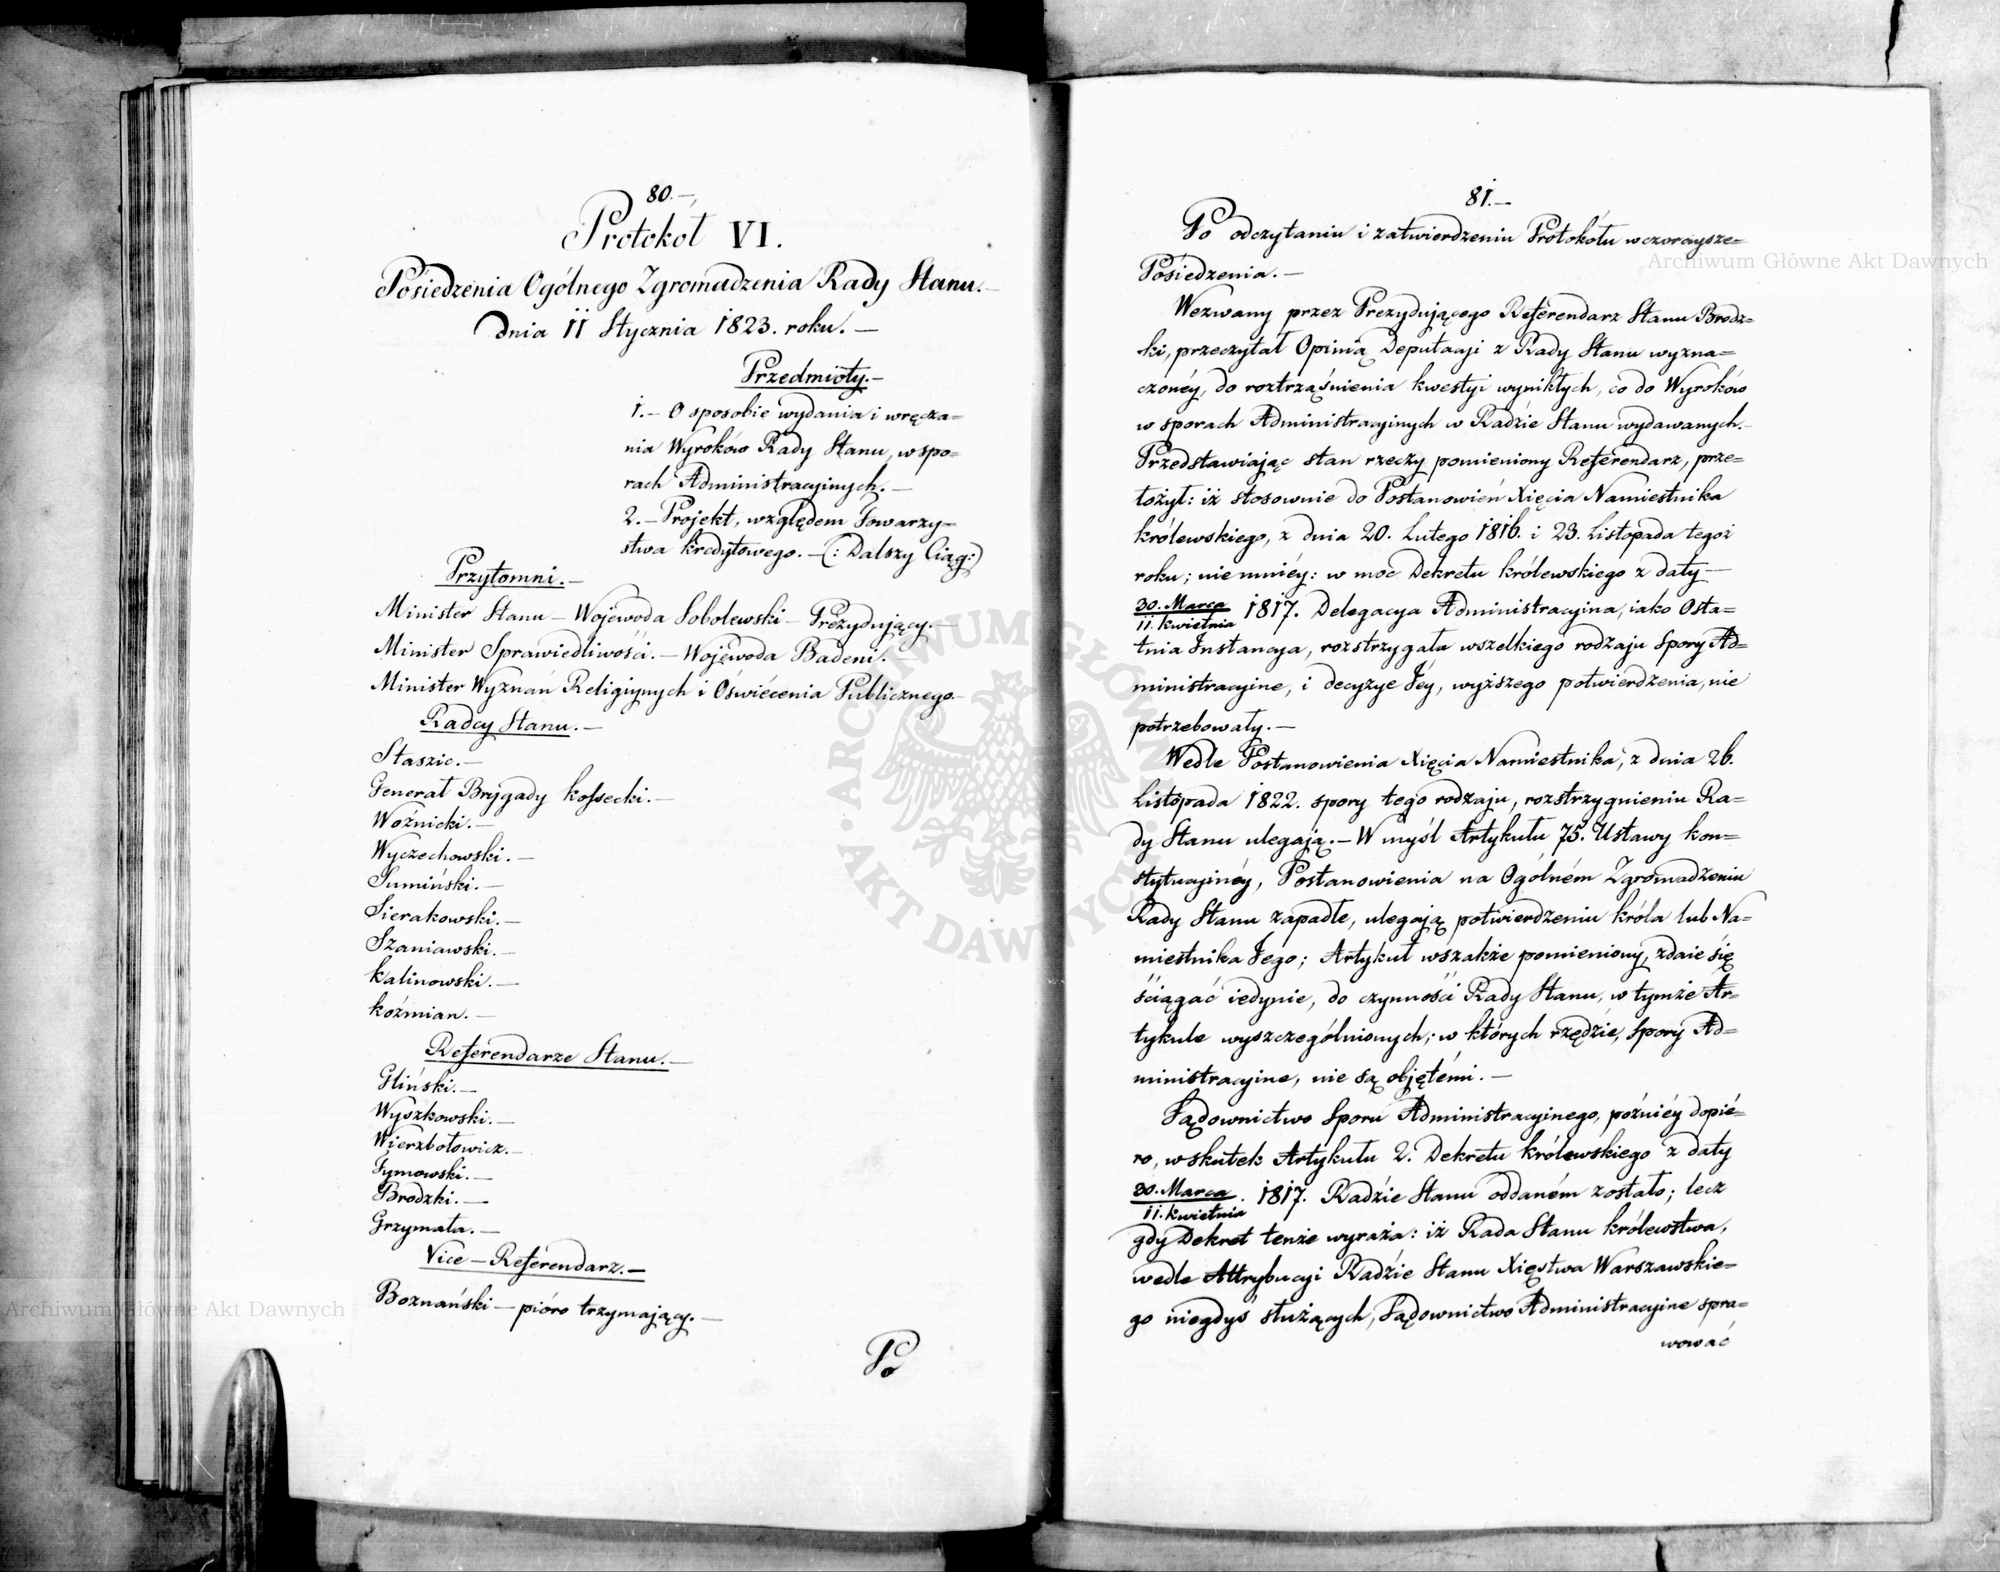 80.—
Protokół VI.
Posiedzenia Ogólnego Zgromadzenia Rady Stanu.—
dnia 11 Stycznia 1823. roku.—
Przedmioty.—
1.— O sposobie wydania i wręcza=
nia Wyroków Rady Stanu, w spo=
rach Administracyinych.—
2.— Projekt, względem Towarzy=
stwa kredytowego.— (: Dalszy Ciąg:)
Przytomni.—
Minister Stanu — Wojewoda Sobolewski — Prezydujący.—
Minister Sprawiedliwości.— Wojewoda Badeni.—
Minister Wyznań Religiynych i Oświécenia Publicznego.—
Radcy Stanu.—
Staszic.—
Generał Brygady Kossecki.—
Woźnicki.—
Wyczechowski.—
Sumiński.—
Sierakowski.—
Szaniawski.—
Kalinowski.—
Koźmian.—
Referendarze Stanu.—
Gliński.—
Wyszkowski.—
Wierzbołowicz.—
Tymowski.—
Brodzki.—
Grzymała.—
Vice — Referendarz.—
Boznański — pióro trzymający.—
Po
81.—
Po odczytaniu i zatwierdzeniu Protokółu wczoraysze=
Posiedzenia.—
Wezwany przez Prezydującego Referendarz Stanu Brodz=
ki, przeczytał Opinią Deputacyi z Rady Stanu wyzna=
czonéy, do roztrząśnienia kwestyi wynikłych, co do Wyroków
w sporach Administracyinych w Radzie Stanu wydawanych.—
Przedstawiając stan rzeczy pomieniony Referendarz, prze=
łożył: iż stosownie do Postanowień Xięcia Namiestnika
królewskiego, z dnia 20. Lutego 1816. i 23. Listopada tegoż
roku; nie mniéy: w moc Dekretu królewskiego z daty —
30. Marca
11. kwietnia 1817. Delegacya Administracyina, iako Osta=
tnia Instancya, rozstrzygała wszelkiego rodzaju Spory Ad=
ministracyine, i decyzye Jéy, wyższego potwierdzenia, nie
potrzebowały.—
Wedle Postanowienia Xięcia Namiestnika, z dnia 26.
Listopada 1822. spory tego rodzaju, rozstrzygnieniu Ra=
dy Stanu ulegają.— W myśl Artykułu 75. Ustawy kon=
stytucyinéy, Postanowienia na Ogólném Zgromadzeniu
Rady Stanu zapadłe, ulegają potwierdzeniu króla lub Na=
miestnika Jego; Artykuł wszakże pomieniony, zdaie się
ściągać iedynie, do czynności Rady Stanu, w tymże Ar=
tykule wyszczególnionych; w których rzędzie, Spory Ad=
ministracyine, nie są objętémi.—
Sądownictwo Sporu Administracyinego, późniéy dopié=
ro, w skutek Artykułu 2. Dekretu królewskiego z daty
30. Marca
11. kwietnia 1817. Radzie Stanu oddaném zostało; lecz
gdy Dekret tenże wyraża: iż Rada Stanu królewstwa,
wedle Attrybucyi Radzie Stanu Xięstwa Warszawskie=
go niegdyś służących, Sądownictwo Administracyine spra=
wować
Archiwum Główne Akt Dawnych
Archiwum Główne Akt Dawnych
ARCHIWUM GŁÓWNE AKT DAWNYCH